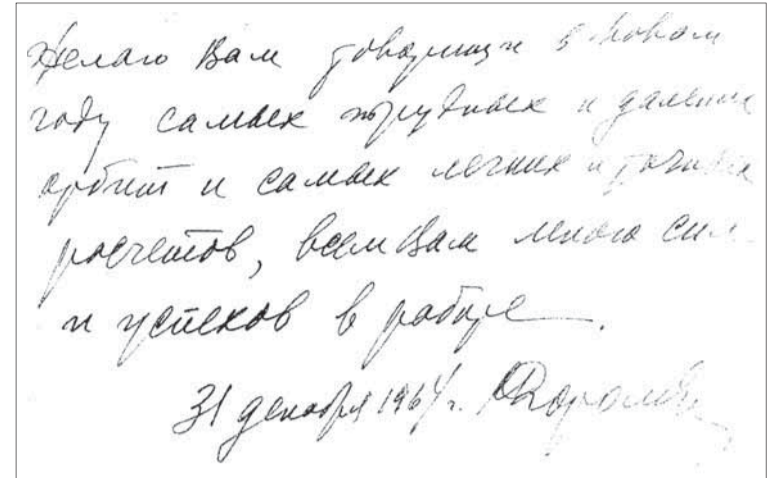 Желаю Вам товарищи в Новом
году самых трудных и далеких
орбит и самых легких и точных
расчетов, всем Вам много сил
и успехов в работе.
31 декабря 1964 г. Королев